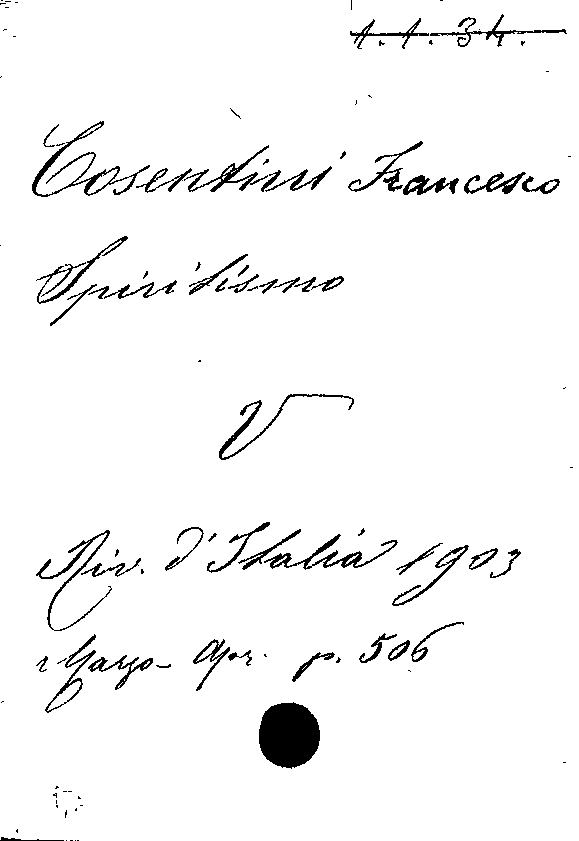 1.1.34.
Cosentini Francesco
Spiritismo
V
Riv. d'Italia 1903
Marzo-Apr. p. 506